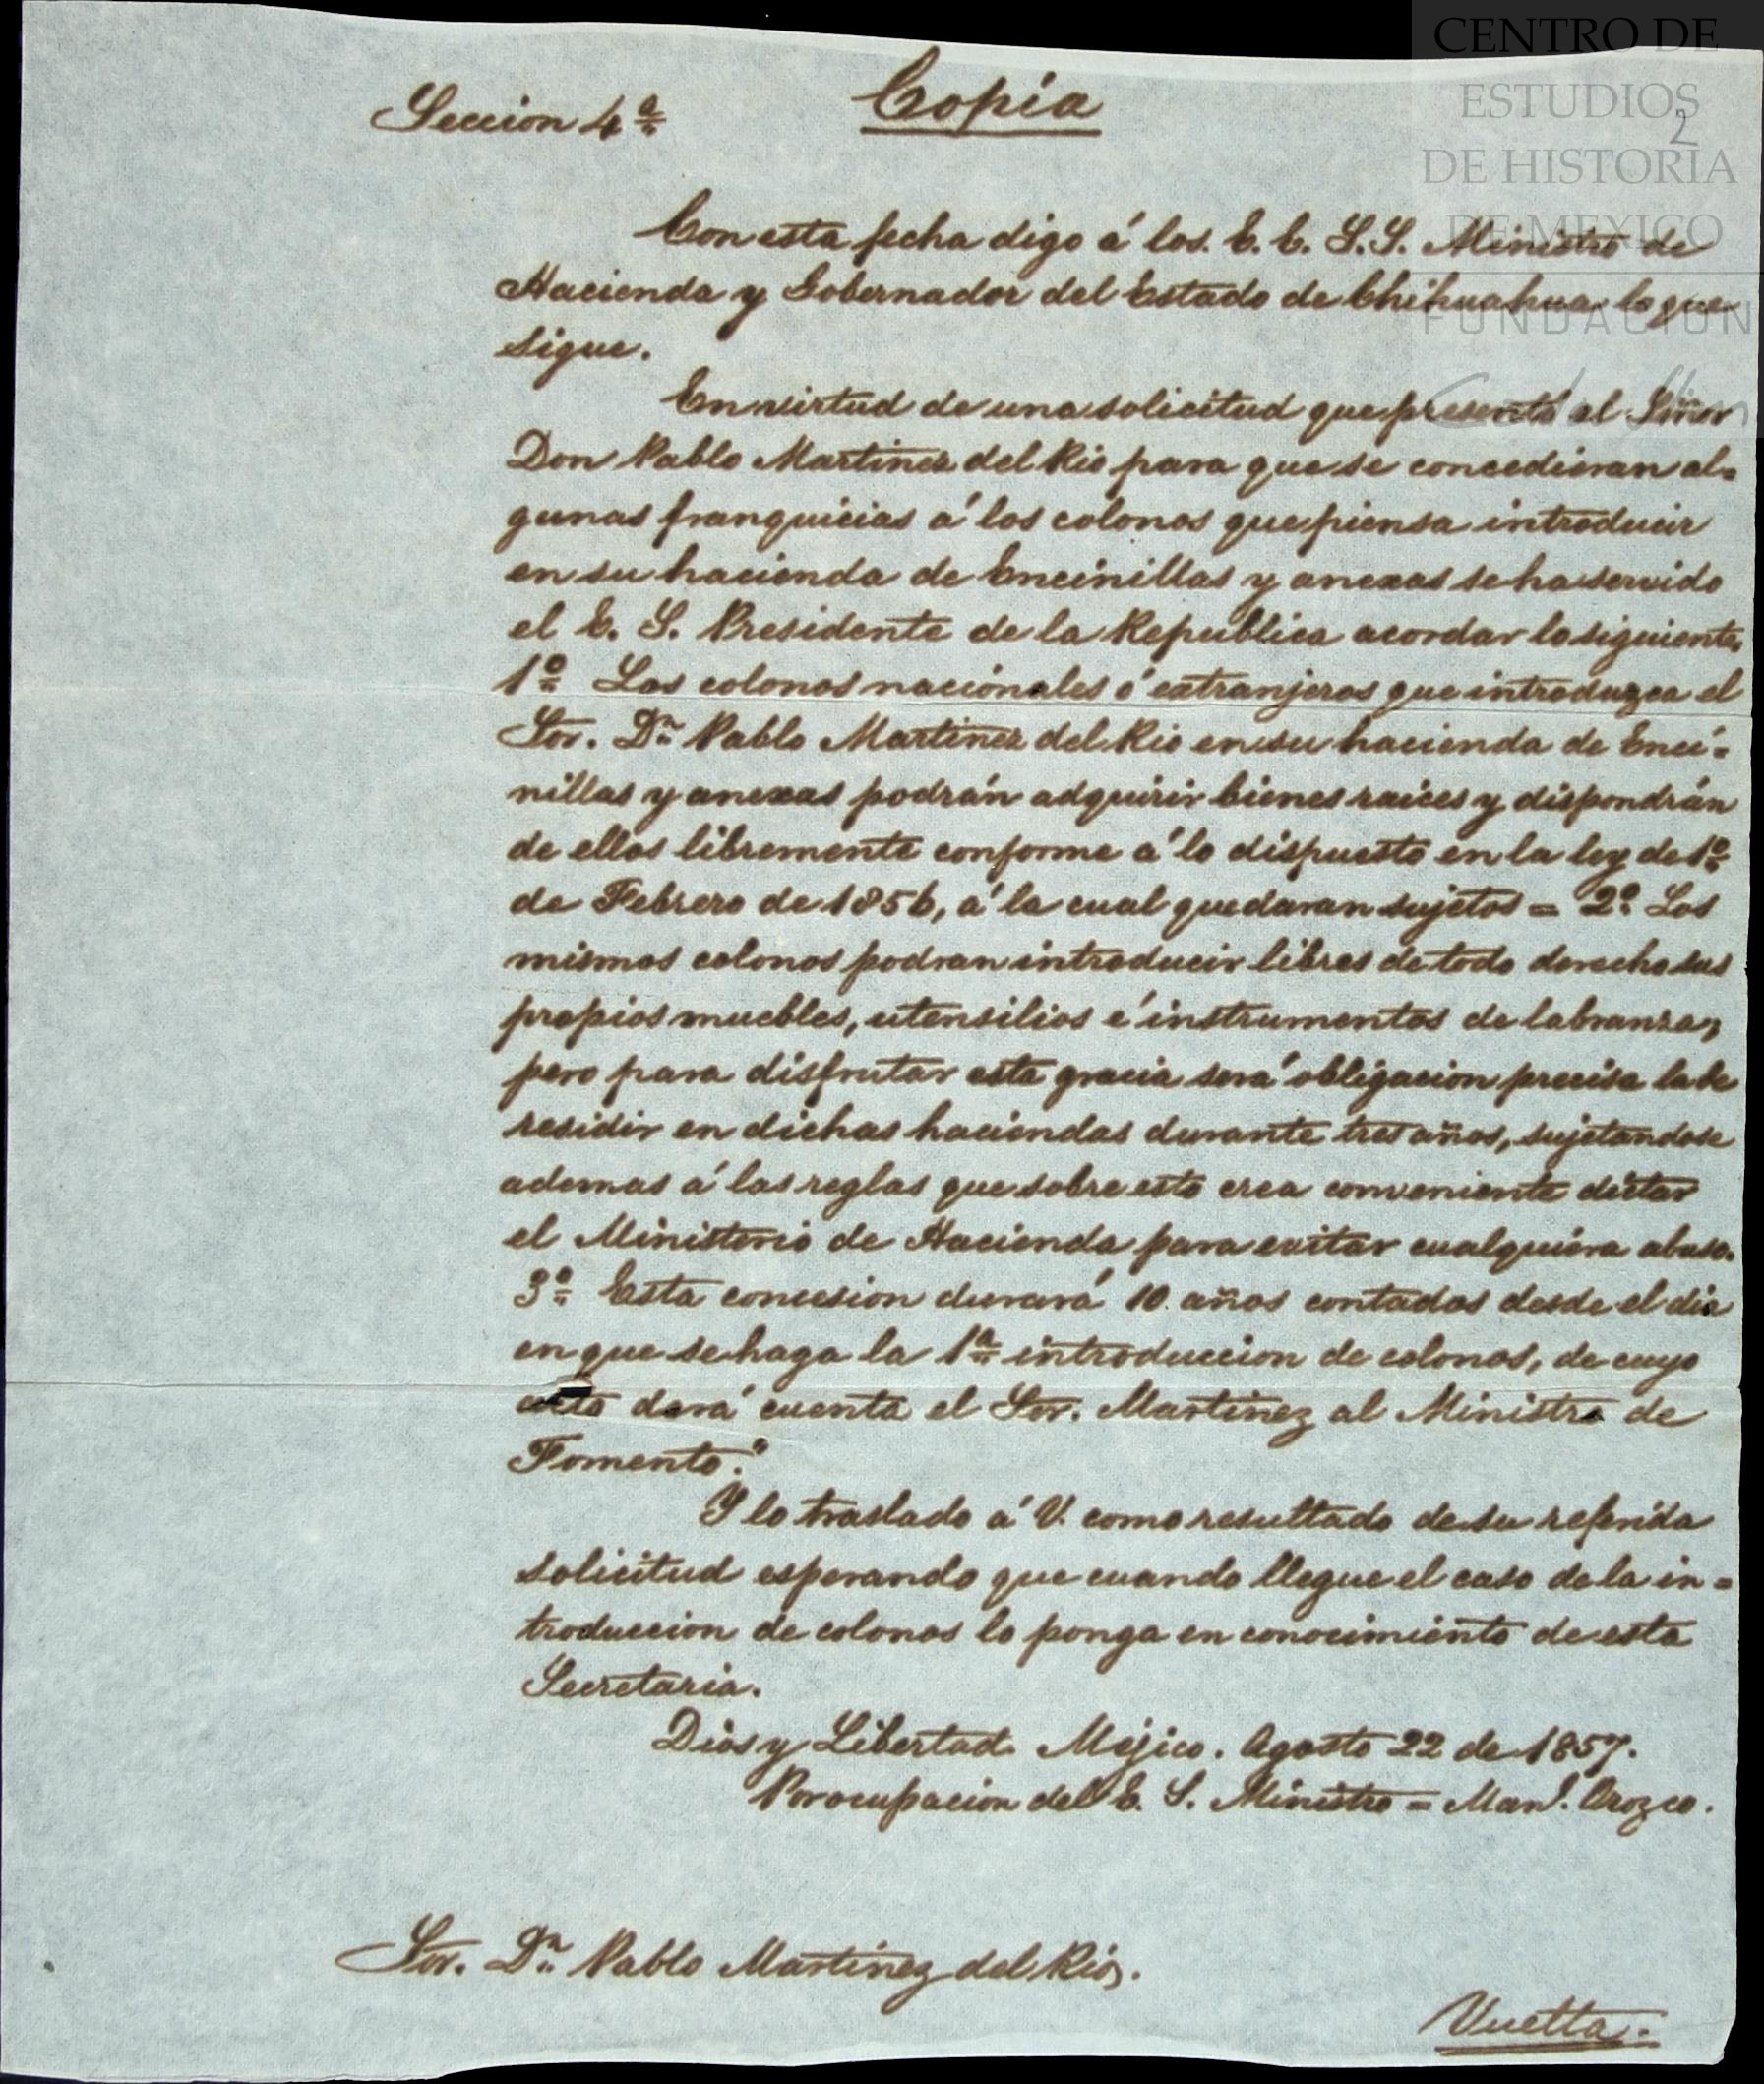 CENTRO DE
ESTUDIOS
2
DE HISTORIA
DE MEXICO
FUNDACION
Seccion 4ª
Copia
Con esta fecha digo á los. E. E. S.S. Ministro de
Hacienda y Gobernador del Estado de Chihuahua lo que
sigue.
En virtud de una solicitud que presentó el Señor
Don Pablo Martinez del Rio para que se concedieran al=
gunas franquicias á los colonos que piensa introducir
en su hacienda de Encinillas y anexas se ha servido
el E. S. Presidente de la Republica acordar lo siguiente,
1º Los colonos nacionales ó extranjeros que introduzca el
Sor. Dn Pablo Martinez del Rio en su hacienda de Enci=
nillas y anexas podrán adquirir bienes raices y dispondrán
de ellos libremente conforme á lo dispuesto en la ley de 1º
de Febrero de 1856, á la cual quedaran sujetos = 2º Los
mismos colonos podran introducir libres de todo derecho sus
propios muebles, utensilios é instrumentos de labranza,
pero para disfrutar esta gracia será obligacion precisa la de
residir en dichas haciendas durante tres años, sujetandose
ademas á las reglas que sobre esto crea conveniente dictar
el Ministerio de Hacienda para evitar cualquiera abuso.
3º Esta concesion durará 10 años contados desde el dia
en que se haga la 1ª introduccion de colonos, de cuyo
acto dará cuenta el Sor. Martinez al Ministro de
Fomento."
Y lo traslado á V. como resultado de su referida
solicitud esperando que cuando llegue el caso de la in=
troduccion de colonos lo ponga en conocimiento de esta
Secretaria.
Dios y Libertad. Mejico. Agosto 22 de 1857.
Por ocupacion del E. S. Ministro = Manl. Orozco.
Sor. Dn Pablo Martinez del Rio.
Vuelta.